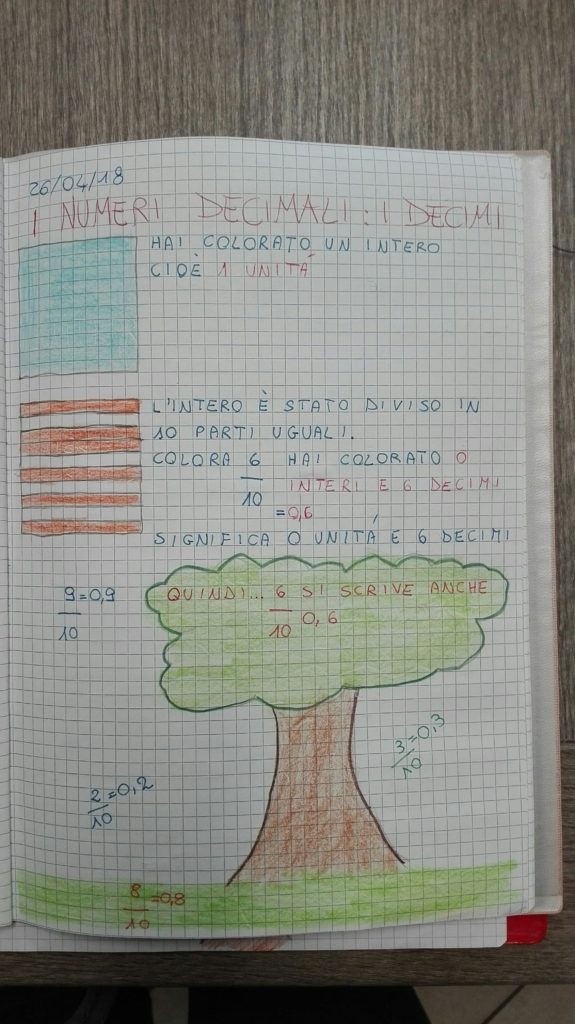 26/04/18
I NUMERI DECIMALI: I DECIMI
HAI COLORATO UN INTERO
CIOÈ 1 UNITÁ
L'INTERO È STATO DIVISO IN
10 PARTI UGUALI.
COLORA 6/10 HAI COLORATO 0
INTERI E 6 DECIMI
=0,6
SIGNIFICA 0 UNITÁ E 6 DECIMI
QUINDI... 6/10 SI SCRIVE ANCHE
0,6
9/10=0,9
3/10=0,3
2/10=0,2
8/10=0,8